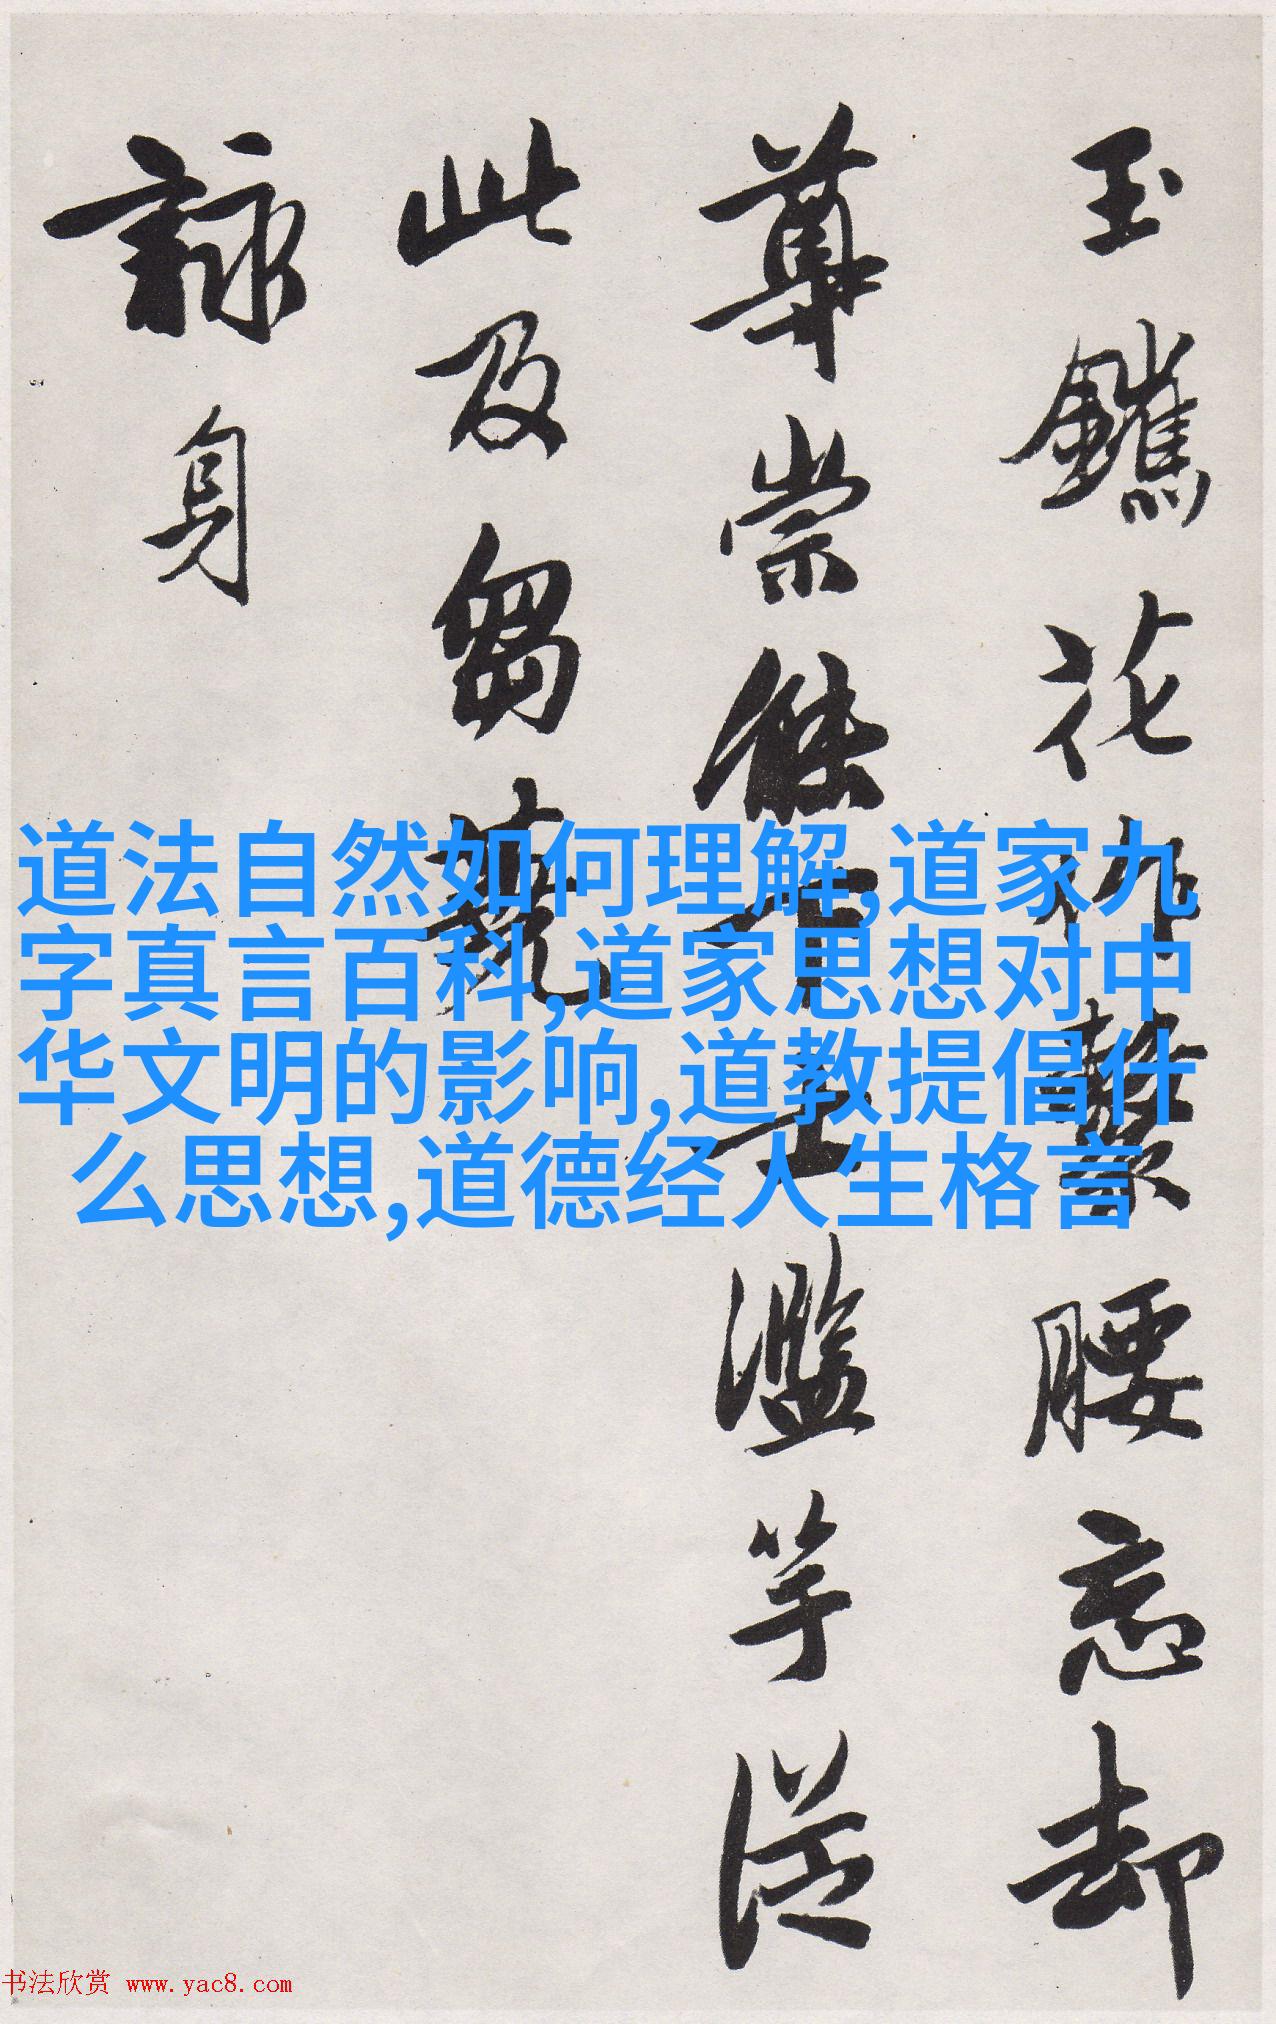 玉鑣花作繫腰忘却
尊崇無下士濫竽從
此及芻蕘
詠身
道法自然如何理解,道家九
字真言百科,道家思想对中
华文明的影响,道教提倡什
么思想,道德经人生格言
书法欣赏 www.yac8.com